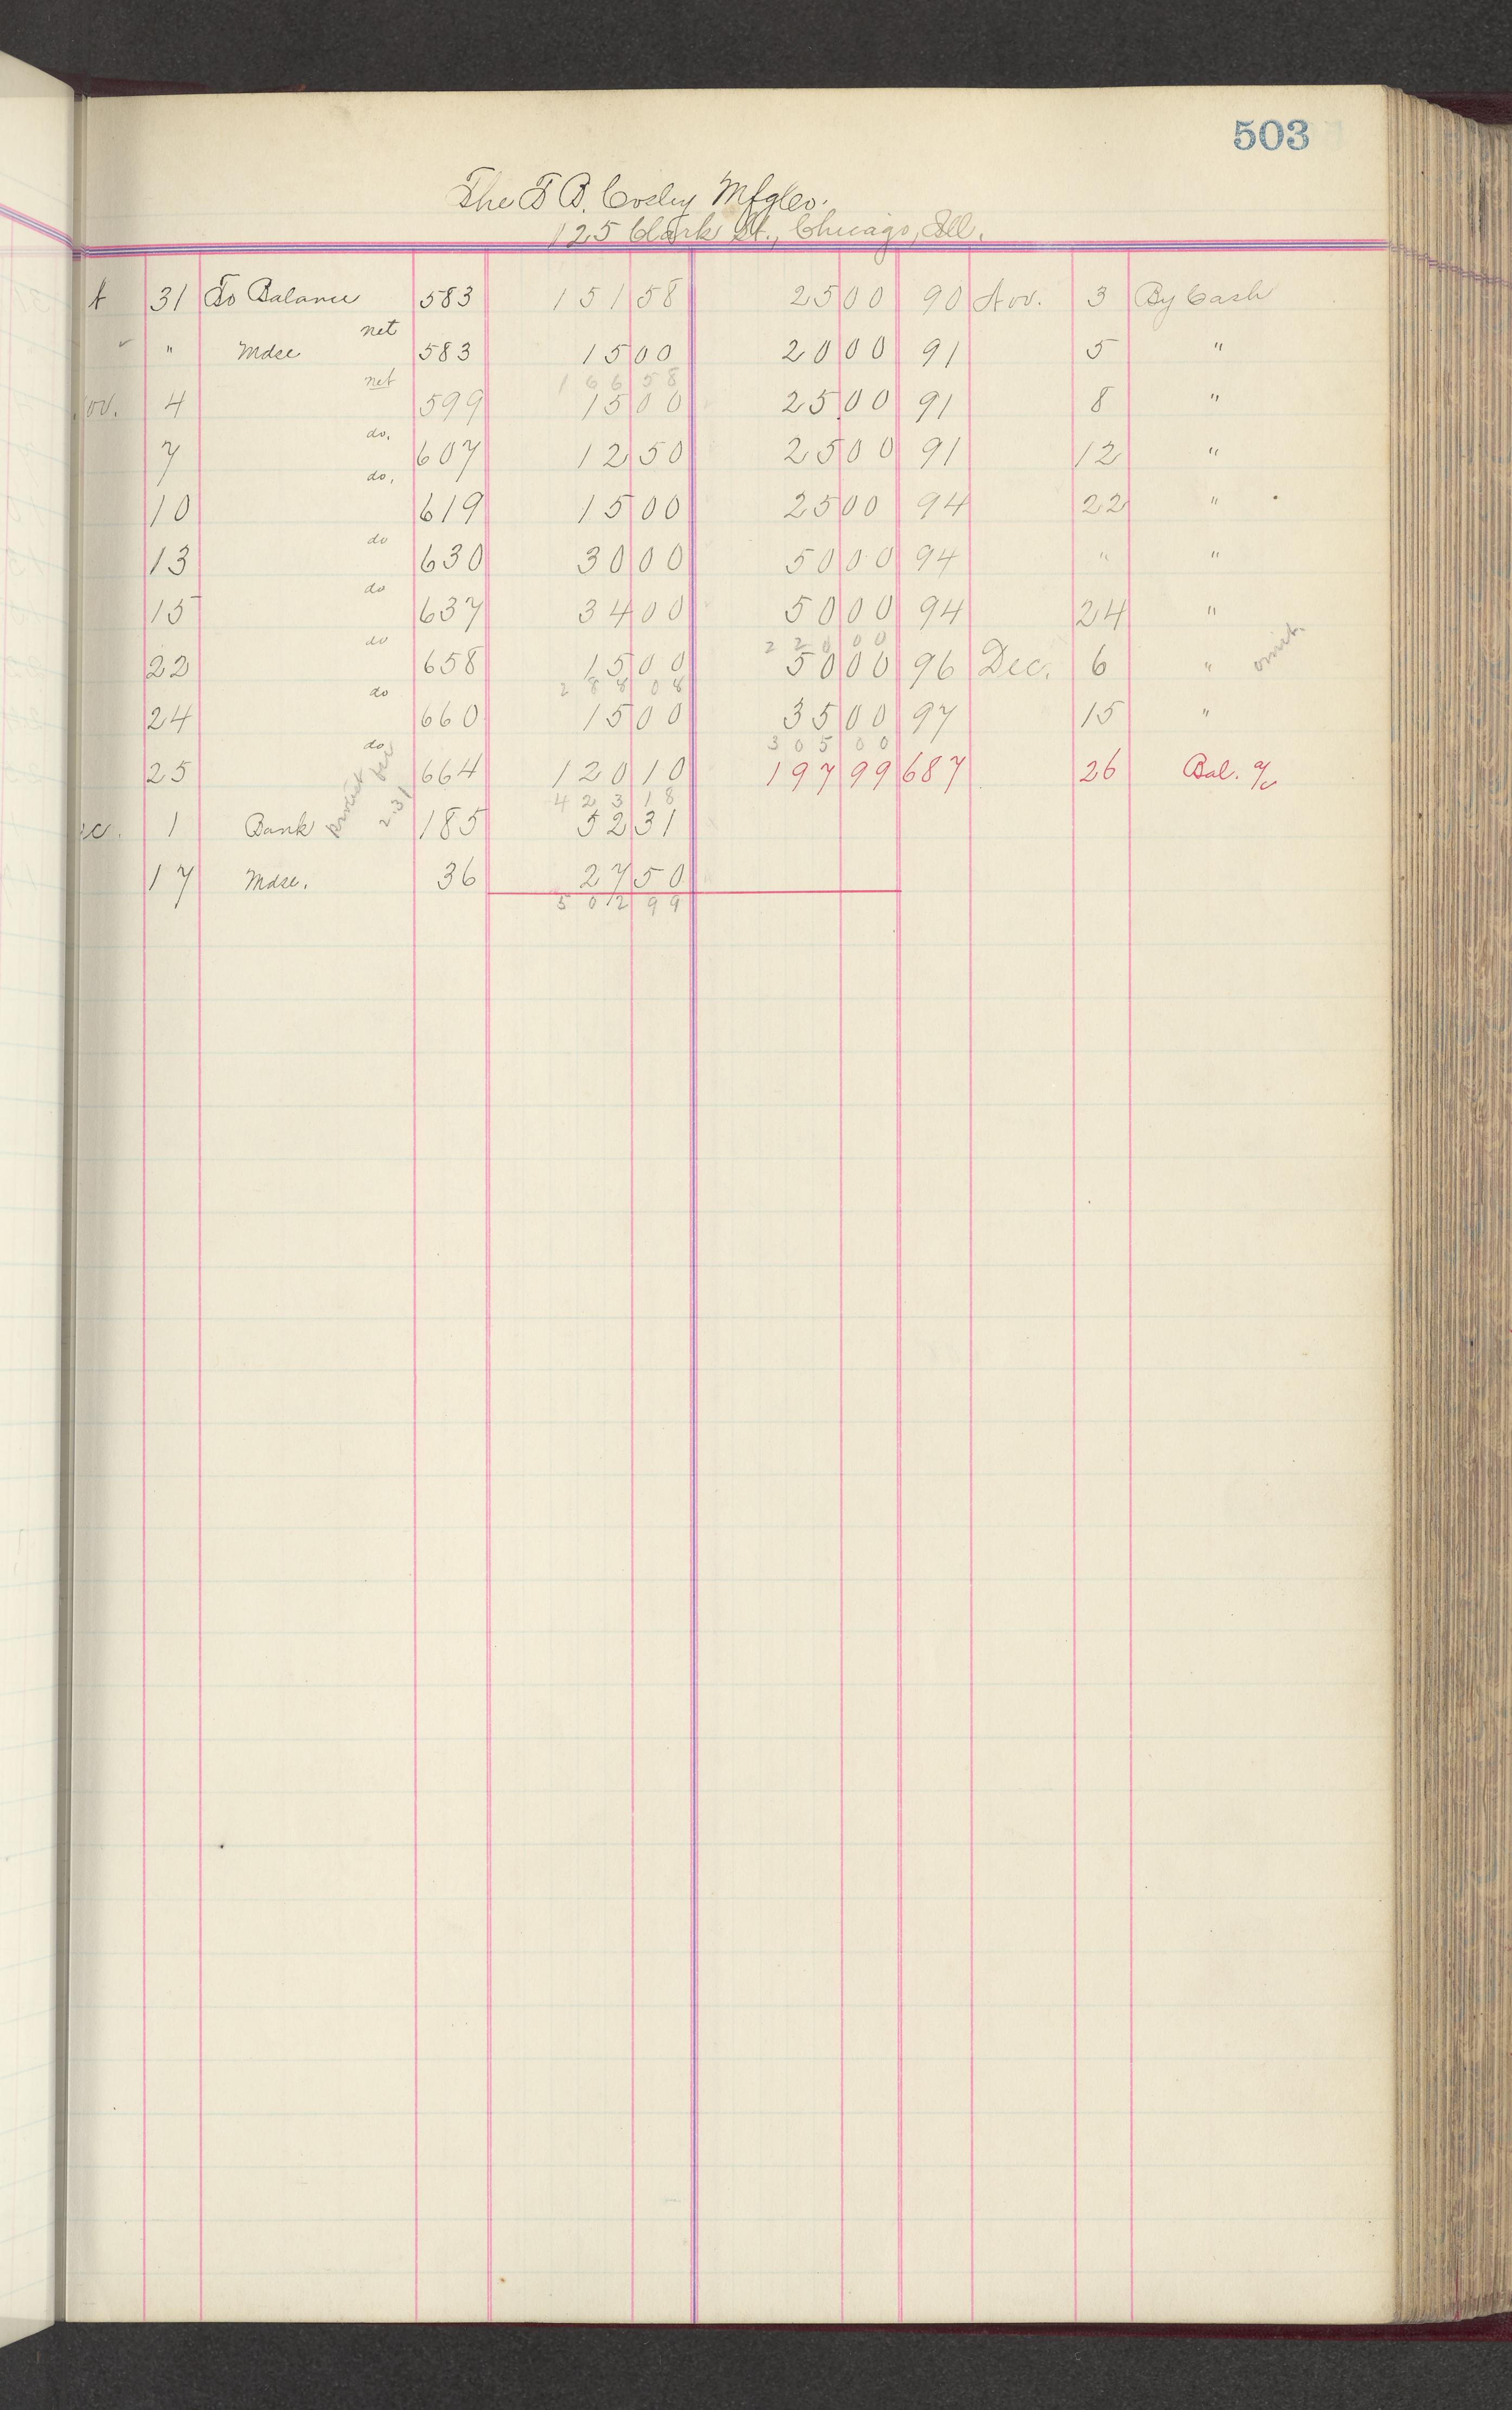 503
The T B. Cosley Mfg Co.
125 Clark St., Chicago, Ill.
t 31 To Balance 583 151 58 25 00 90 Nov. 3 By Cash
" Mdse net 583 15 00 20 00 91 5 "
166 58
ov. 4 net 599 15 00 25 00 91 8 "
7 do. 607 12 50 25 00 91 12 "
10 do. 619 15 00 25 00 94 22 "
13 do 630 30 00 50 00 94 " "
15 do 637 34 00 50 00 94 24 "
220 00
22 do 658 15 00 50 00 96 Dec. 6 " omit.
288 08
24 do 660 15 00 35 00 97 15 "
305 00
25 do 664 120 10 197 99 687 26 Bal. a/c
423 18
ec. 1 Bank protest fee 2.31 185 52 31
17 Mdse. 36 27 50
502 99